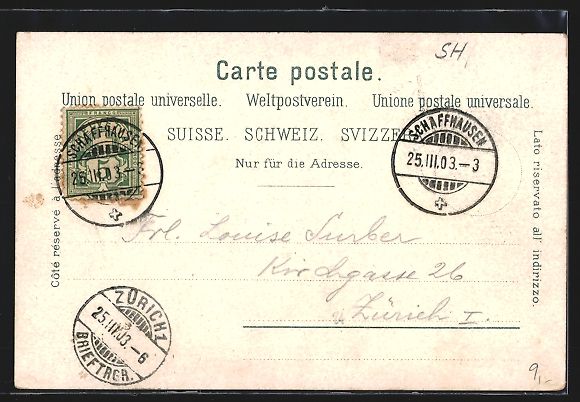 SH
Carte postale.
Union postale universelle. Weltpostverein. Unione postale universale.
SUISSE. SCHWEIZ. SVIZZE
Nur für die Adresse.
Côté réservé à l'adresse.
Lato riservato all' indirizzo.
FRANCO
5
SCHAFFHAUSEN
25.III.03.–3
SCHAFFHAUSEN
25.III.03.–3
Frl. Louise Surber
Kirchgasse 26
Zürich I.
ZÜRICH 1
25.III.03.–6
BRIEFTRGR.
9,-